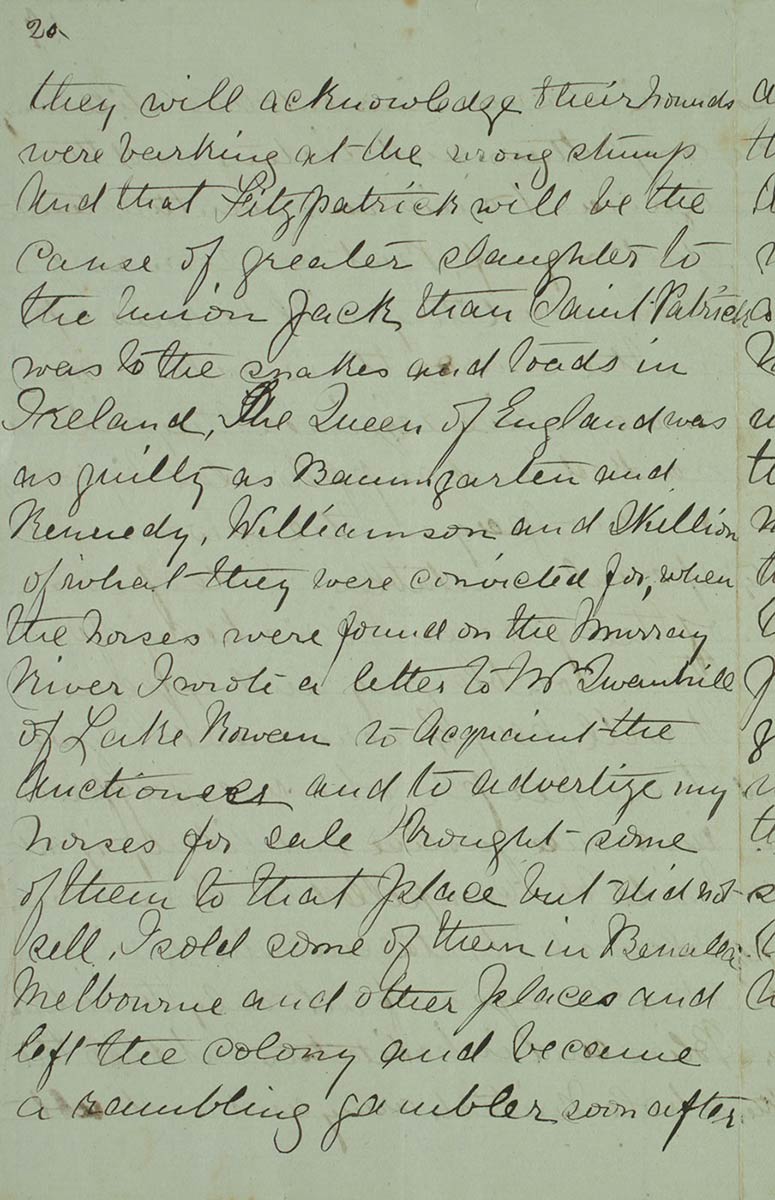 20
they will acknowledge their hounds
were barking at the wrong stump
And that Fitzpatrick will be the
cause of greater slaughter to
the Union Jack than Saint Patrick
was to the snakes and toads in
Ireland, The Queen of England was
as guilty as Baumgarten and
Kennedy, Williamson and Skillion
of what they were convicted for, when
the horses were found on the Murray
River I wrote a letter to Mr Swanhill
of Lake Rowan to Acquaint the
Auctioneer and to advertize my
horses for sale I brought some
of them to that place but did not
sell, I sold some of them in Benalla
Melbourne and other places and
left the colony and became
a rambling gambler soon after